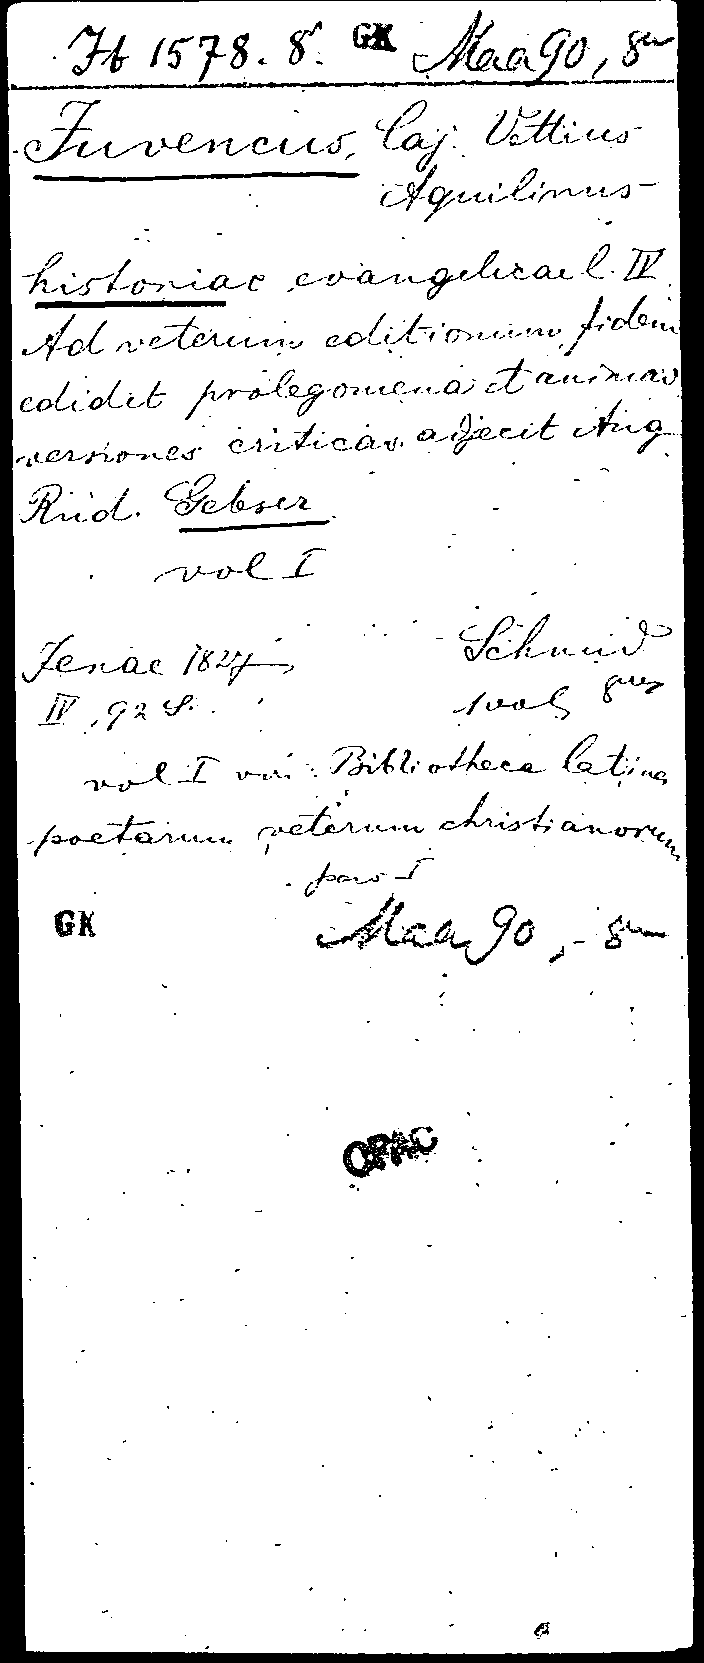 Jt 1578. 8°. GK Maa 90, 8vo
Juvencus, Caj. Vettius
Aquilinus
historiae evangelicae l. IV.
Ad veterum editionum fidem
edidit prolegomena et animad
versiones criticas adjecit Aug
Rud. Gebser
vol I
Jenae 1827 Schmid
IV, 92 S. 1 vol 8vo
vol I von: Bibliotheca latina
poetarum veterum christianorum
pars I
GK Maa 90, 8vo
OPAC